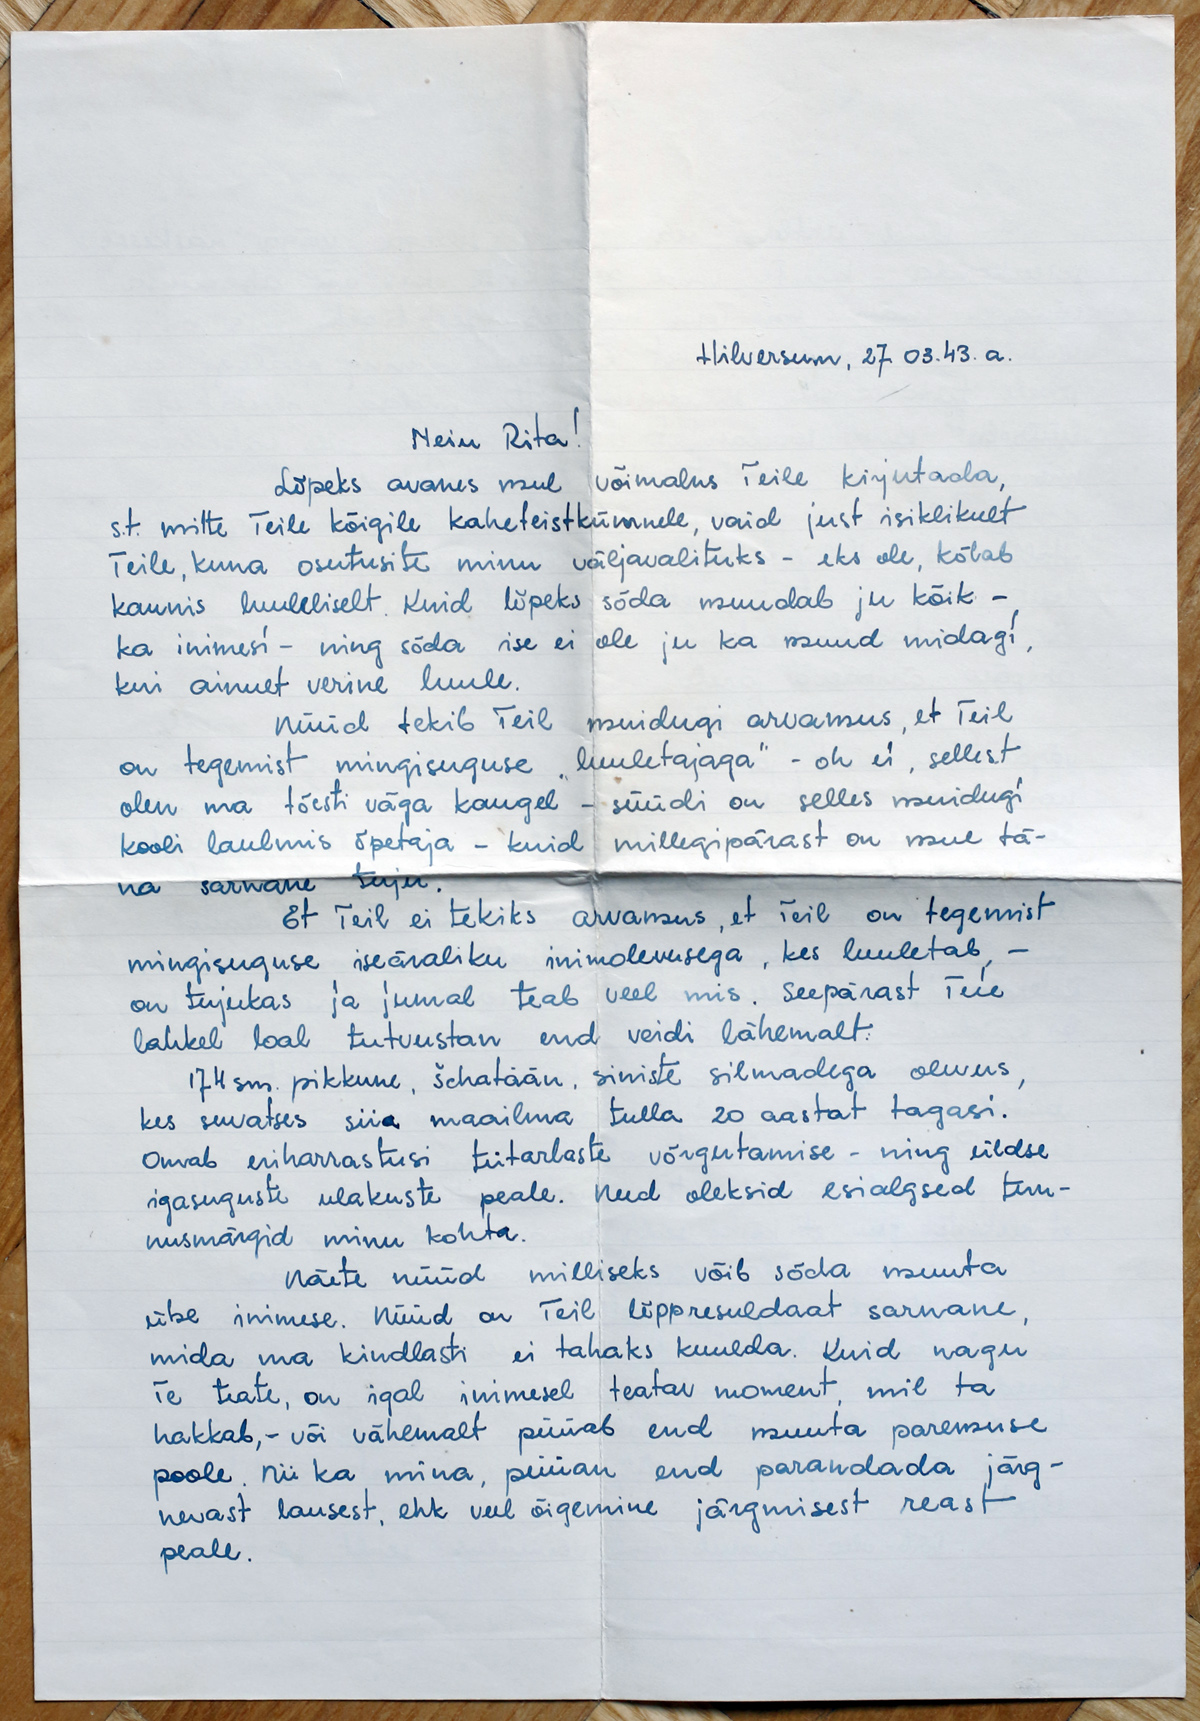 Hilversum, 27. 03.43. a.
Neiu Rita!
Lõpeks avanes mul võimalus Teile kirjutada,
s.t. mitte Teile kõigile kaheteistkümnele, vaid just isiklikult
Teile, kuna osutusite minu väljavalituks - eks ole, kõlab
kaunis luuleliselt. Kuid lõpeks sõda muudab ju kõik -
ka inimesi - ning sõda ise ei ole ju ka muud midagi,
kui ainult verine luule.
Nüüd tekib Teil muidugi arvamus, et Teil
on tegemist mingisuguse „luuletajaga" - oh ei, sellest
olen ma tõesti väga kaugel - süüdi on selles muidugi
kooli laulmis õpetaja - kuid millegipärast on mul tä-
na sarnane tuju.
Et Teil ei tekiks arvamus, et Teil on tegemist
mingisuguse iseäraliku inimolevusega, kes luuletab, -
on tujukas ja jumal teab veel mis. Seepärast Teie
lahkel loal tutvustan end veidi lähemalt:
174 sm. pikkune, šchatään, siniste silmadega olevus,
kes suvatses siia maailma tulla 20 aastat tagasi.
Omab eriharrastusi tütarlaste võrgutamise - ning üldse
igasuguste ulakuste peale. Need oleksid esialgsed tun-
nusmärgid minu kohta.
Näete nüüd milliseks võib sõda muuta
ühe inimese. Nüüd on Teil lõppresuldaat sarnane,
mida ma kindlasti ei tahaks kuulda. Kuid nagu
Te teate, on igal inimesel teatav moment, mil ta
hakkab, - või vähemalt püüab end muuta paremuse
poole. Nii ka mina, püüan end parandada järg-
nevast lausest, ehk veel õigemine järgmisest reast
peale.